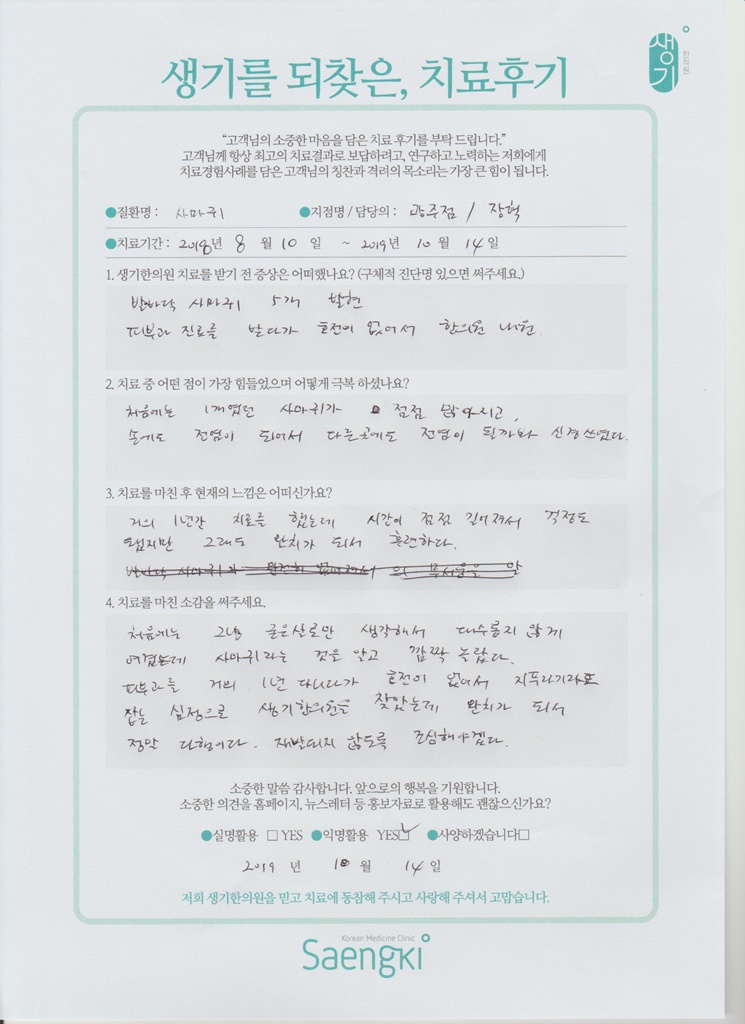 생기를 되찾은, 치료후기
생기
한의원
“고객님의 소중한 마음을 담은 치료 후기를 부탁 드립니다.”
고객님께 항상 최고의 치료결과로 보답하려고, 연구하고 노력하는 저희에게
치료경험사례를 담은 고객님의 칭찬과 격려의 목소리는 가장 큰 힘이 됩니다.
●질환명 : 사마귀 ●지점명 / 담당의 : 광주점 / 장혁
●치료기간 : 2018년 8 월 10 일 ~ 2019년 10 월 14 일
1. 생기한의원 치료를 받기 전 증상은 어떠했나요? (구체적 진단명 있으면 써주세요.)
발바닥 사마귀 5개 발현
피부과 진료를 받다가 호전이 없어서 한의원 내원
2. 치료 중 어떤 점이 가장 힘들었으며 어떻게 극복 하셨나요?
처음에는 1개였던 사마귀가 점점 많아지고,
손에도 전염이 되어서 다른곳에도 전염이 될까봐 신경쓰였다.
3. 치료를 마친 후 현재의 느낌은 어떠신가요?
거의 1년간 치료를 했는데 시간이 점점 길어져서 걱정도
됐지만 그래도 완치가 되서 후련하다.
발바닥 사마귀가 완전히 없어져서
4. 치료를 마친 소감을 써주세요.
처음에는 그냥 굳은살로만 생각해서 대수롭지 않게
여겼는데 사마귀라는 것을 알고 깜짝 놀랐다.
피부과를 거의 1년 다니다가 호전이 없어서 지푸라기라도
잡는 심정으로 생기한의원을 찾았는데 완치가 되서
정말 다행이다. 재발되지 않도록 조심해야겠다.
소중한 말씀 감사합니다. 앞으로의 행복을 기원합니다.
소중한 의견을 홈페이지, 뉴스레터 등 홍보자료로 활용해도 괜찮으신가요?
●실명활용 □ YES ●익명활용 YES☑ ●사양하겠습니다□
2019 년 10 월 14 일
저희 생기한의원을 믿고 치료에 동참해 주시고 사랑해 주셔서 고맙습니다.
Korean Medicine Clinic
Saengki